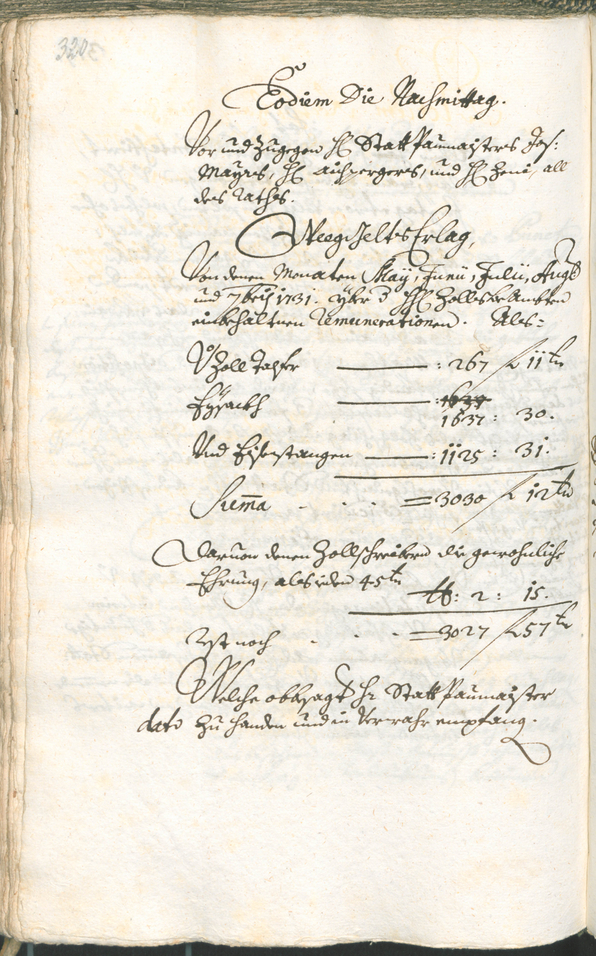 320
Eodiem Die Nachmittag.
Vor und zugegen H: Statt Paumaisters Jos:
Mayrs, H: Aichpergers, und H: Zeni, all
des Raths.
WeegGelts Erlag,
Von denen Monaten Maÿ, Junii, Julii, Augst
und 7bris 1731. yber d HH: Zollesbeambten
einbehaltnen Remunerationen. Als:
V. Zoll Tahfr ——— : 267 f 11 kr
Eysackh ——— : 1637
1637 : 30.
Und Eysenstangen ——— : 1125 : 31.
Suma - . . . = 3030 f 12 kr
Daruon denen Zollschreibern die gewohnliche
Ehrung, als ieden 45 kr
tt: 2 : 15.
Rest noch . . . = 3027 f 57 kr
Welche obbesagt Hr: Statt Paumaister
dato zu handen und in Verwahr empfang.